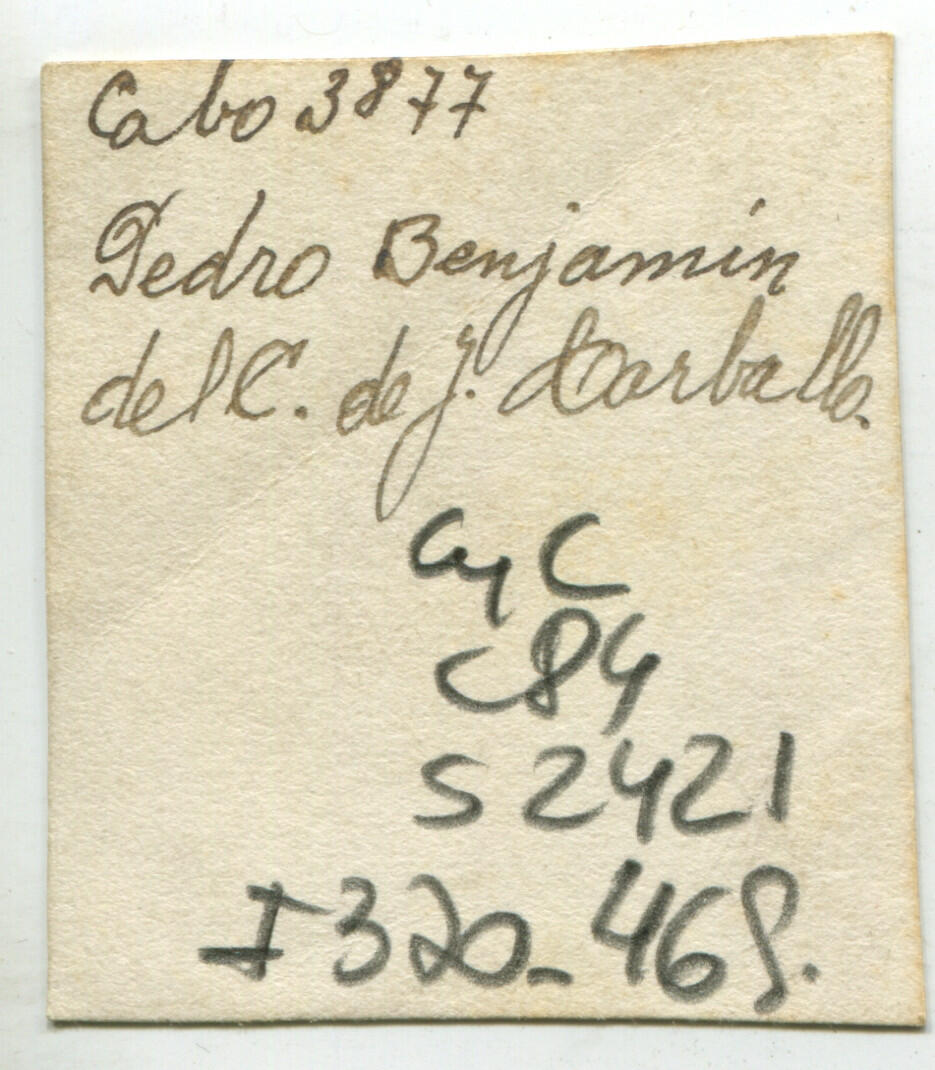 Cabo 3877
Pedro Benjamin
del C. de J. Carballo.
CyC
C84
S2421
I320-469.